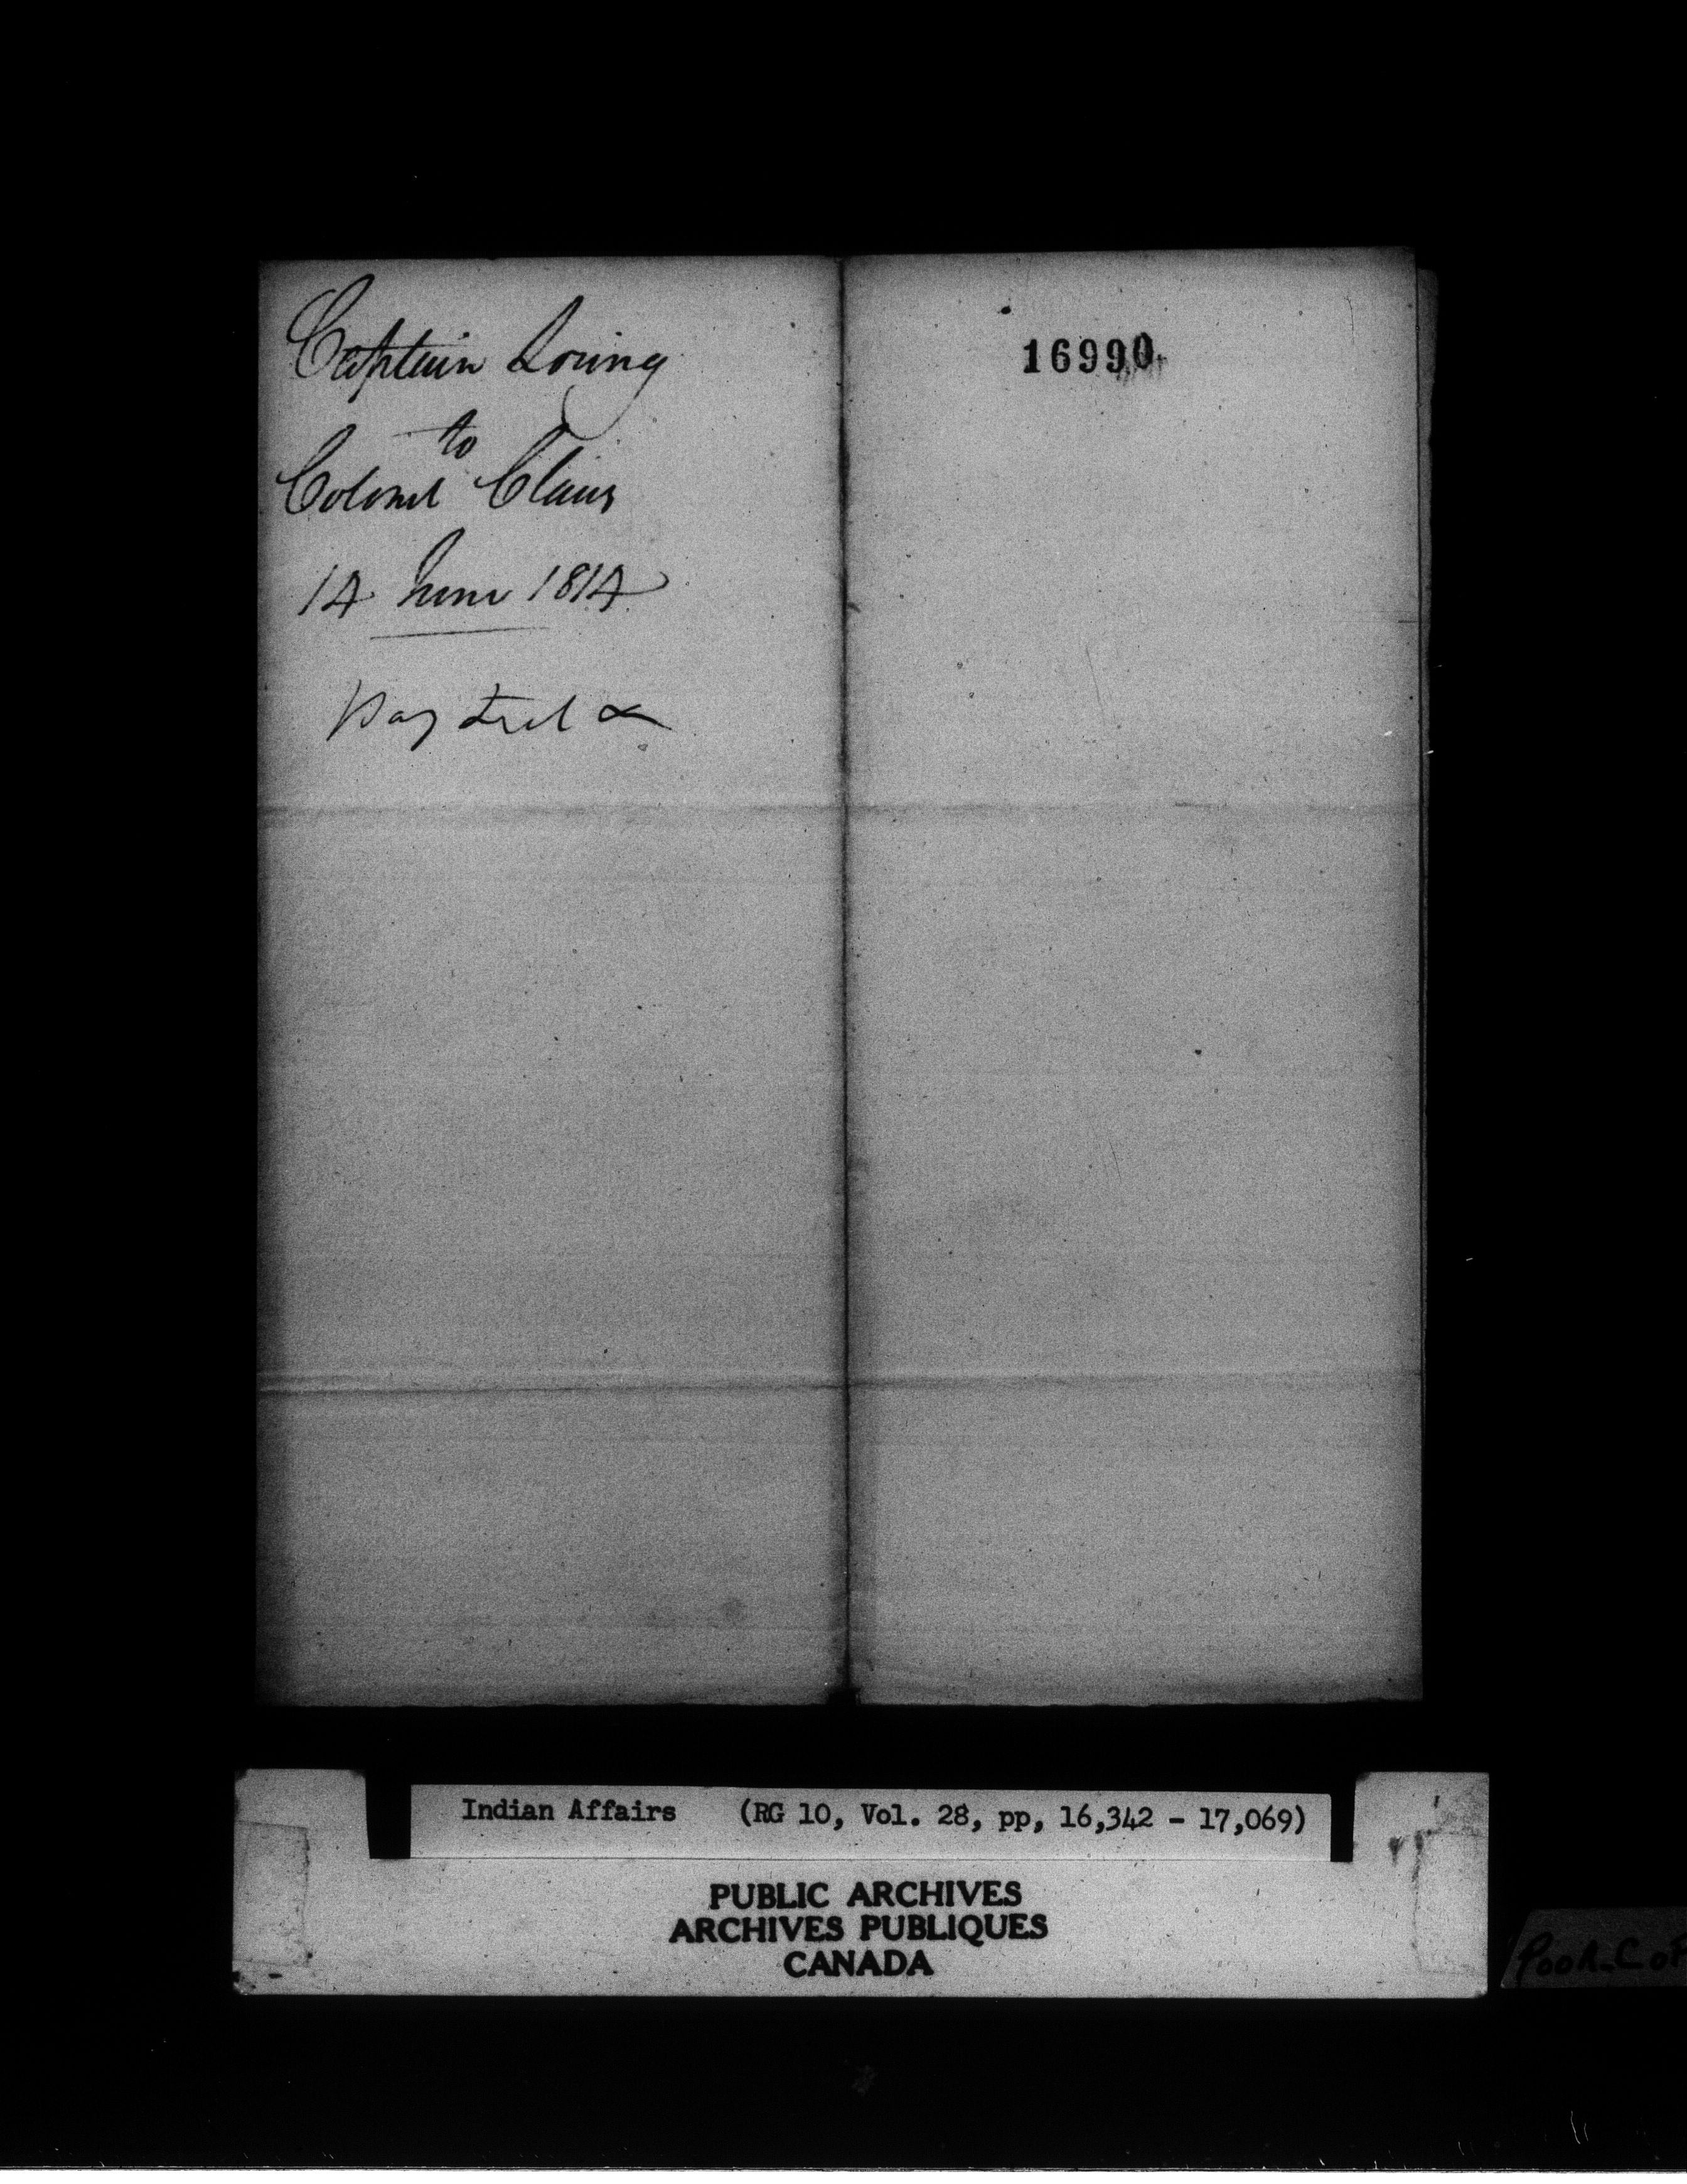 Captain Loring
to
Colonel Claus
14 June 1814
16990
Indian Affairs (RG 10, Vol. 28, pp, 16,342 - 17,069)
PUBLIC ARCHIVES
ARCHIVES PUBLIQUES
CANADA